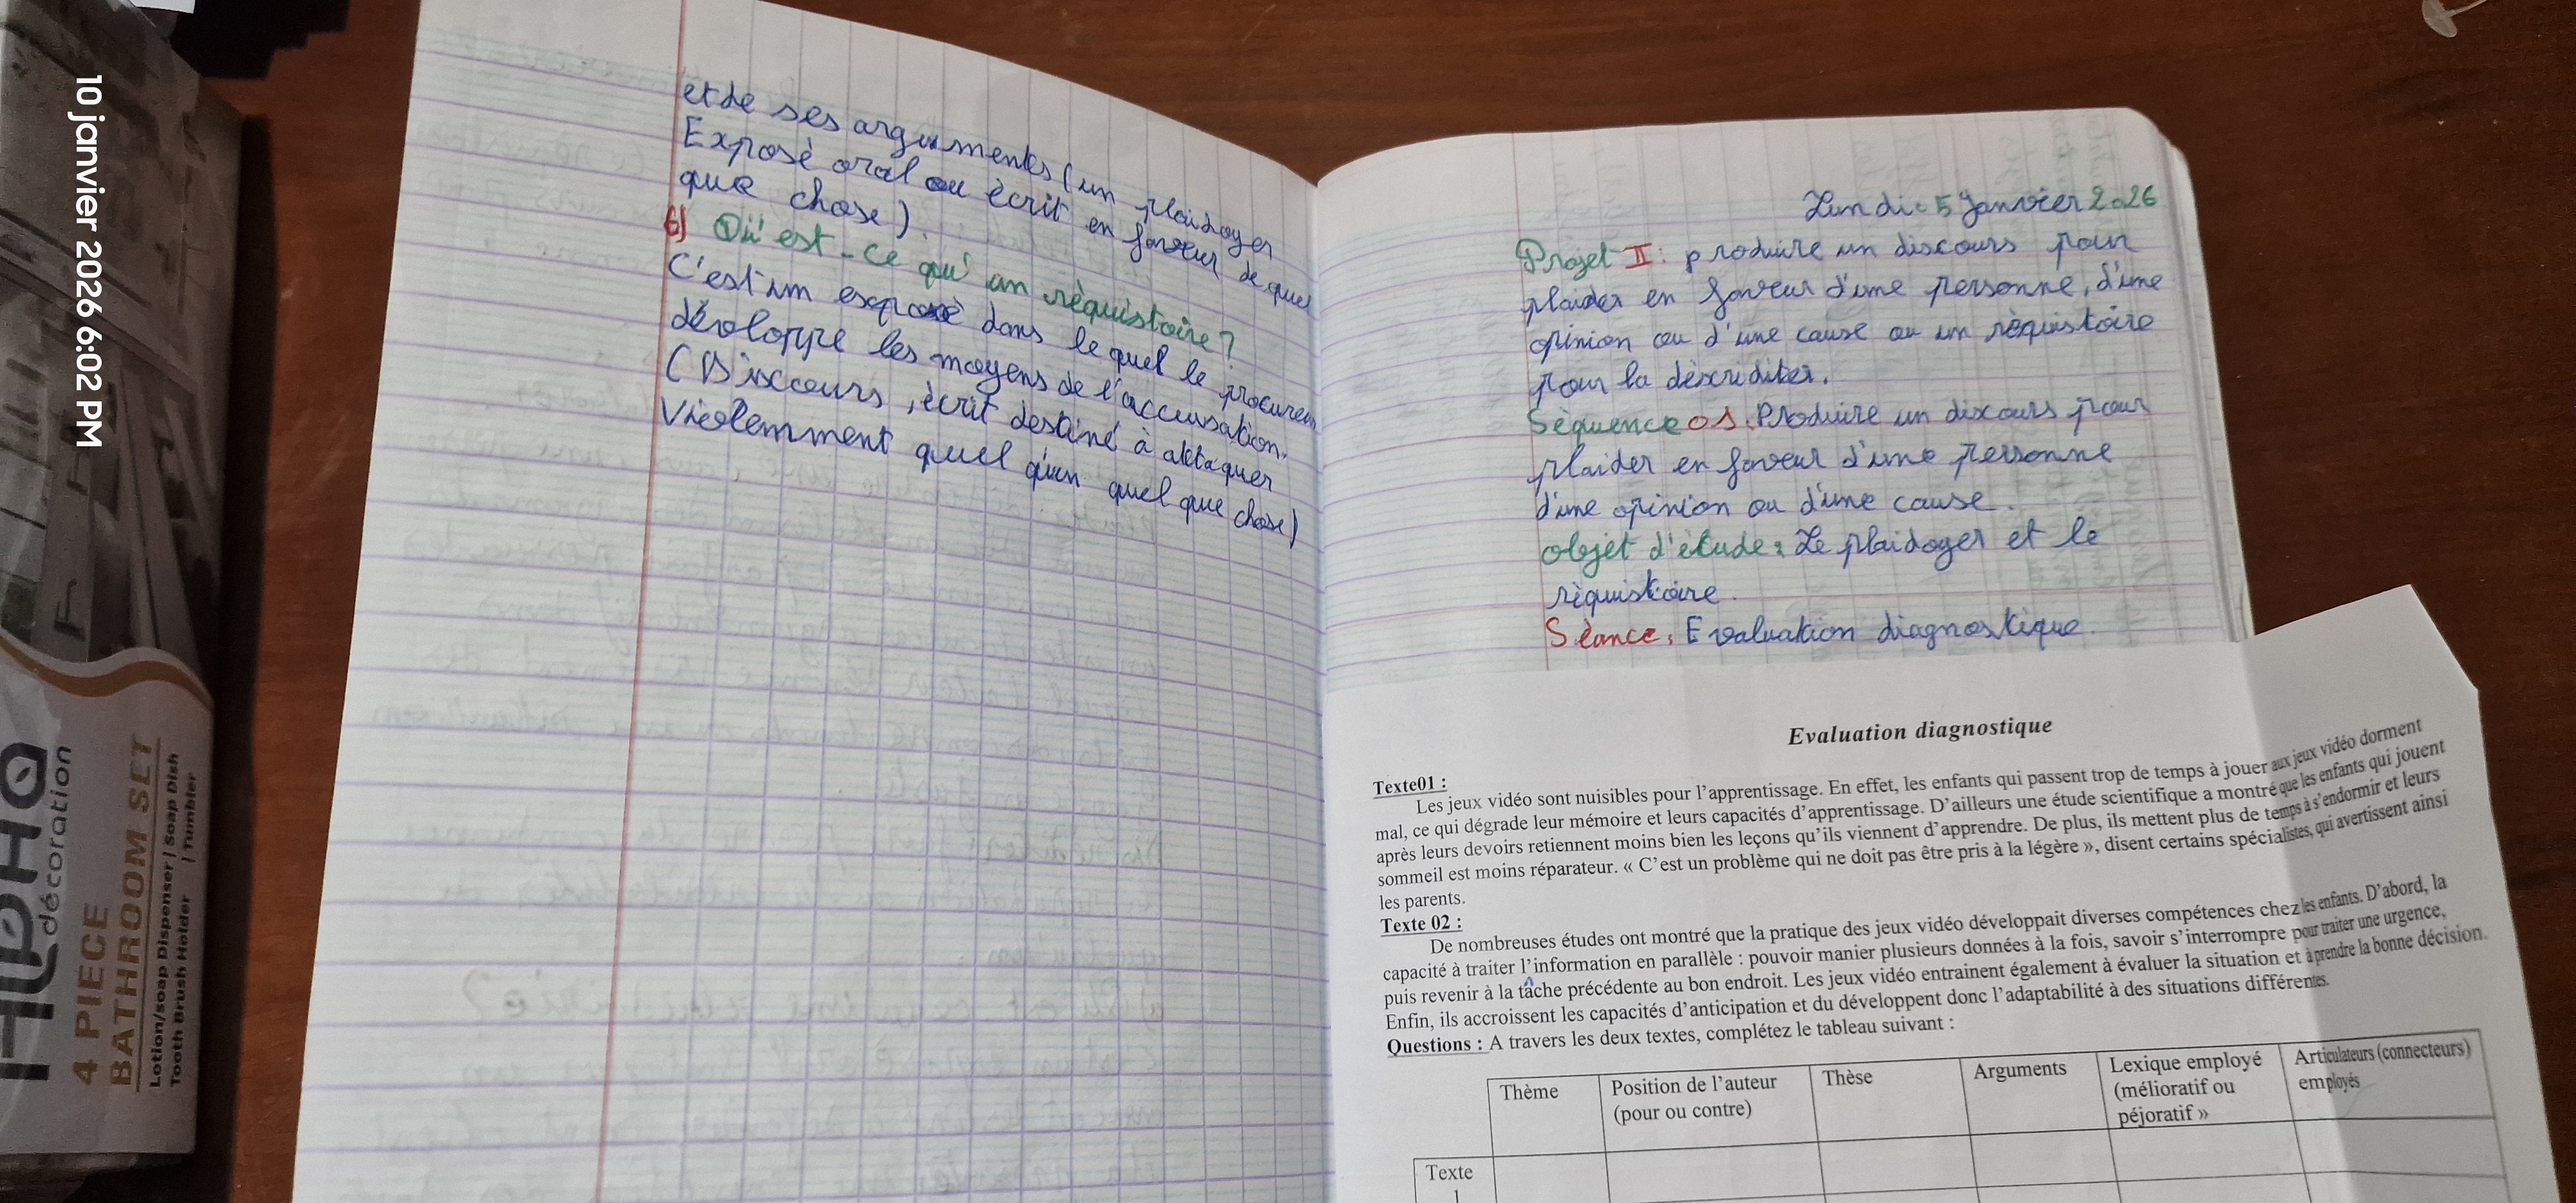 10 janvier 2026 6:02 PM
décoration
4 PIECE
BATHROOM SET
Lotion/soap Dispenser | Soap Dish
Tooth Brush Holder | Tumbler
et de ses arguments (un plaidoyer
Exposè oral ou ècrit en faveur de quel
que chose).
6) Qu'est-ce qu'un rèquistoire?
C'est un exposè dans le quel le procureur
développe les moyens de l'accusation.
(Discours, ècrit destiné à attaquer
Violemment quel qu'un quel que chose)
Lundi: 5 Janvier 2026
Projet II: produire un discours pour
plaider en faveur d'une personne, d'une
opinion ou d'une cause ou un rèquistoire
pour la dèscriditer.
Sèquence 01. Produire un discours pour
plaider en faveur d'une personne
d'une opinion ou d'une cause.
objet d'ètude: Le plaidoyer et le
rèquistoire.
Sèance: Evaluation diagnostique.
Evaluation diagnostique
Texte01 :
Les jeux vidéo sont nuisibles pour l'apprentissage. En effet, les enfants qui passent trop de temps à jouer aux jeux vidéo dorment
mal, ce qui dégrade leur mémoire et leurs capacités d'apprentissage. D'ailleurs une étude scientifique a montré que les enfants qui jouent
après leurs devoirs retiennent moins bien les leçons qu'ils viennent d'apprendre. De plus, ils mettent plus de temps à s'endormir et leurs
sommeil est moins réparateur. « C'est un problème qui ne doit pas être pris à la légère », disent certains spécialistes, qui avertissent ainsi
les parents.
Texte 02 :
De nombreuses études ont montré que la pratique des jeux vidéo développait diverses compétences chez les enfants. D'abord, la
capacité à traiter l'information en parallèle : pouvoir manier plusieurs données à la fois, savoir s'interrompre pour traiter une urgence,
puis revenir à la tâche précédente au bon endroit. Les jeux vidéo entrainent également à évaluer la situation et à prendre la bonne décision.
Enfin, ils accroissent les capacités d'anticipation et du développent donc l'adaptabilité à des situations différentes.
Questions : A travers les deux textes, complétez le tableau suivant :
Thème
Position de l'auteur
(pour ou contre)
Thèse
Arguments
Lexique employé
(mélioratif ou
péjoratif »
Articulateurs (connecteurs)
employés
Texte
1